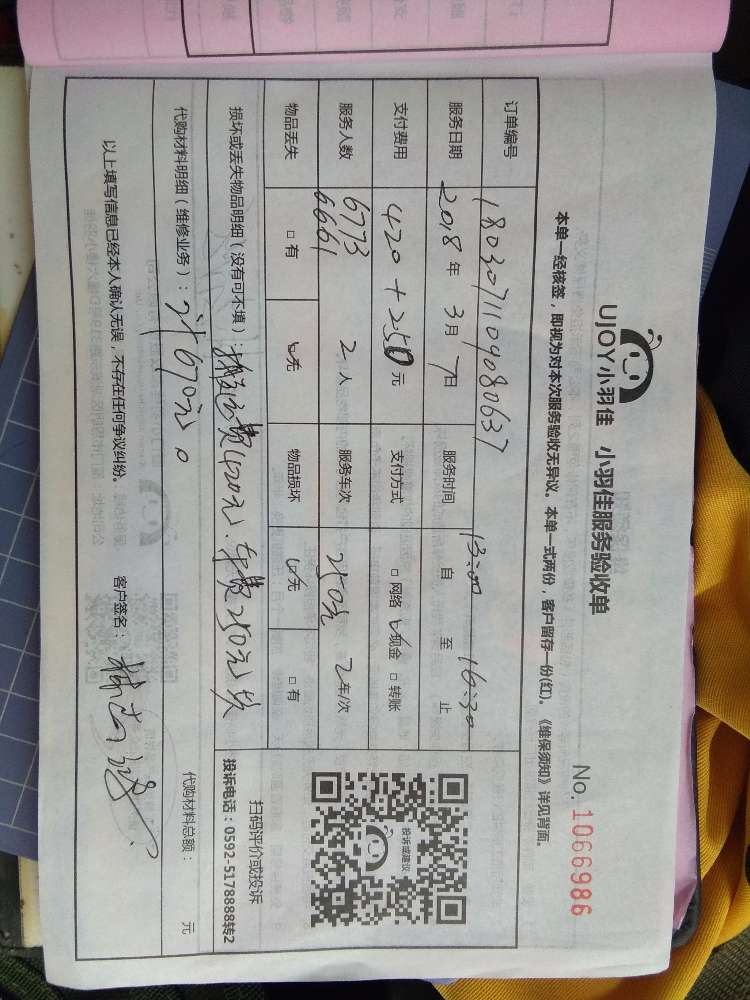 UJOY小羽佳 小羽佳服务验收单
No. 1066986
本单一经核签，即视为对本次服务验收无异议。本单一式两份，客户留存一份(红)。《维保须知》详见背面。
订单编号 1803071109080637
服务日期 2018年3月7日 服务时间 13:00 自 至 16:30 止
支付费用 420+250元 支付方式 □网络 ☑现金 □转账
服务人数 6773 6661 2人 服务车次 250元 2车/次
物品丢失 □有 ☑无 物品损坏 ☑无 □有
投诉或建议
扫码评价或投诉
投诉电话：0592-5178888转2
损坏或丢失物品明细（没有可不填）：搬运费(420元)、车费250元
代购材料明细（维修业务）：计670元。
代购材料总额： 元
以上填写信息已经本人确认无误，不存在任何争议纠纷。
客户签名：